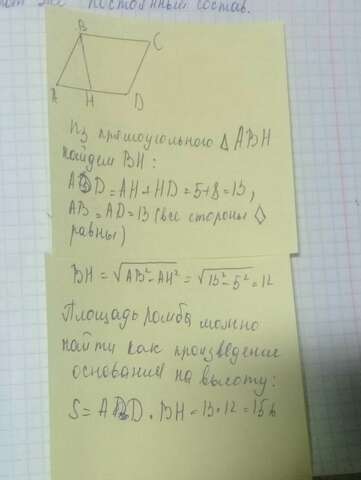 постоянный состав.
B
C
A
H
D
Из прямоугольного △ ABH
найдем BH:
AD = AH + HD = 5+8 = 13,
AB = AD = 13 (все стороны ◇
равны)
BH = √AB²-AH² = √13²-5² = 12
Площадь ромба можно
найти как произведение
основания на высоту:
S = AD · BH = 13 · 12 = 156